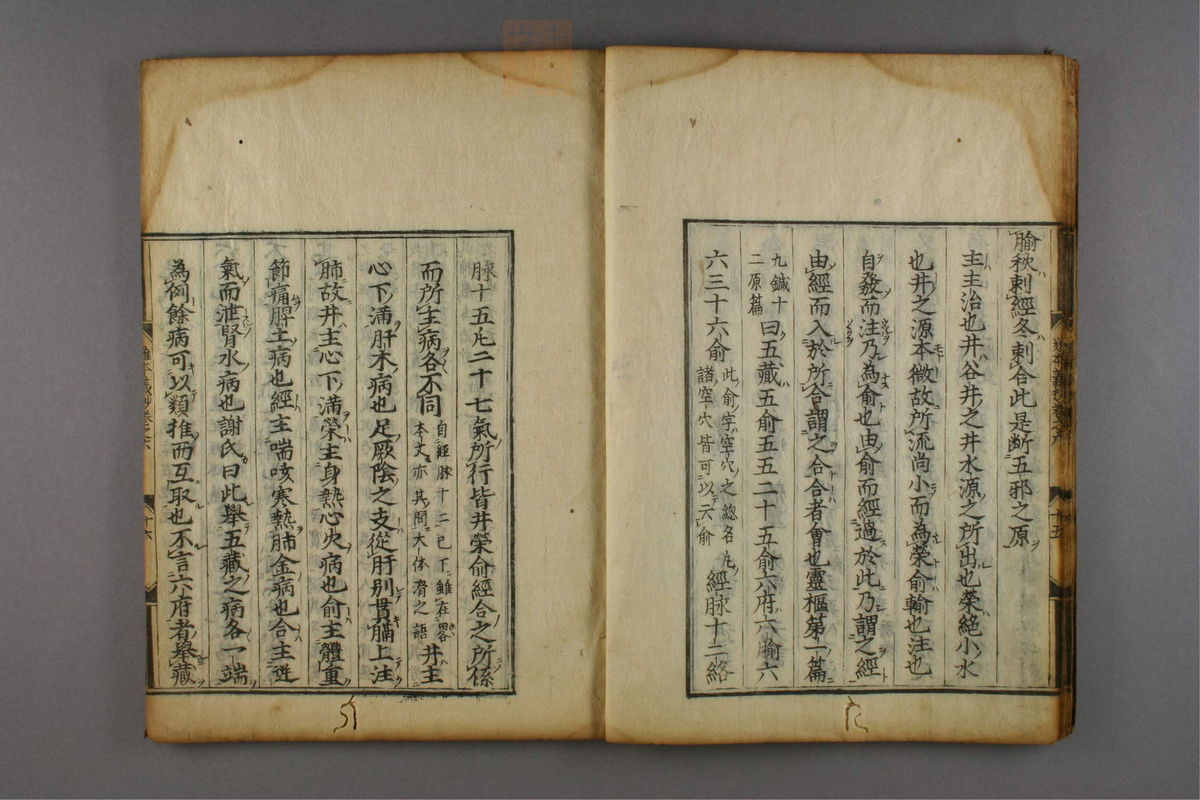 腧秋刺經冬刺合此是断五邪之原
主主治也井谷井之井水源之所出也滎絕小水
也井之源本微故所流尚小而為滎俞輸也注也
自發而注乃為俞也由俞而經過於此乃謂之經
由經而入於所合謂之合合者會也靈樞第一篇
九鍼十二原篇曰五藏五俞五五二十五俞六府六腧六
六三十六俞此俞字空穴之總名凡諸空穴皆可以云俞經脉十二絡
十五
脉十五凡二十七氣所行皆井滎俞經合之所係
而所主病各不同自經脉十二已下雖在畧本文亦其間大体滑之語井主
心下滿肝木病也足厥陰之支從肝別貫膈上注
肺故井主心下滿滎主身熱心火病也俞主體重
節痛脾土病也經主喘咳寒熱肺金病也合主逆
氣而泄腎水病也謝氏曰此舉五藏之病各一端
為例餘病可以類推而互取也不言六府者舉藏
十六